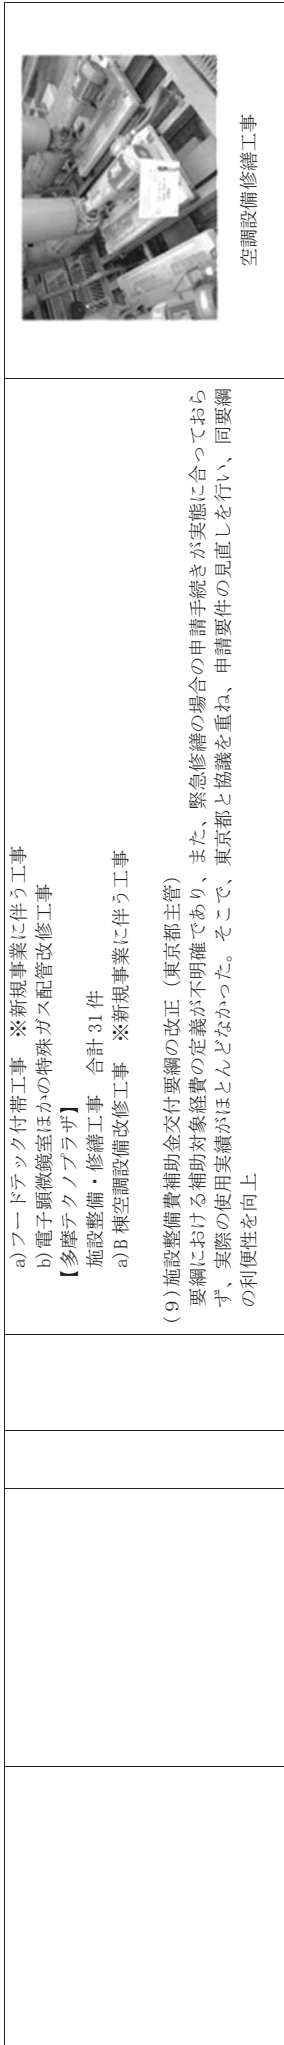 a)フードテック付帯工事　※新規事業に伴う工事
b)電子顕微鏡室ほかの特殊ガス配管改修工事
【多摩テクノプラザ】
施設整備・修繕工事　合計 31 件
a)B 棟空調設備改修工事　※新規事業に伴う工事
(９)施設整備費補助金交付要綱の改正（東京都主管）
要綱における補助対象経費の定義が不明確であり、また、緊急修繕の場合の申請手続きが実態に合っておら
ず、実際の使用実績がほとんどなかった。そこで、東京都と協議を重ね、申請要件の見直しを行い、同要綱
の利便性を向上
空調設備修繕工事